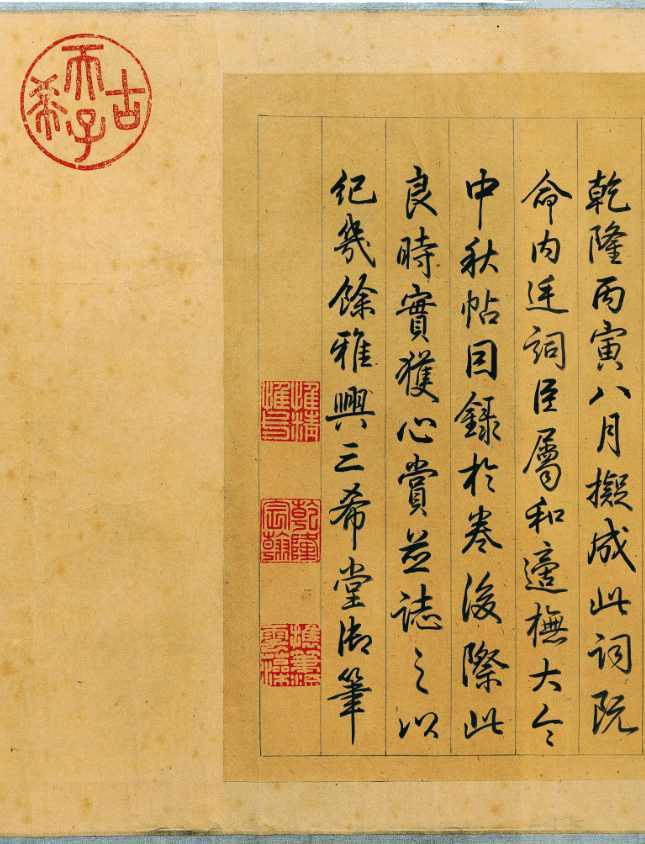 乾隆丙寅八月擬成此詞既
命内廷詞臣屬和適橅大令
中秋帖因錄於卷後際此
良時實獲心賞並誌之以
紀幾餘雅興三希堂御筆
惟精惟一
乾隆宸翰
古希天子